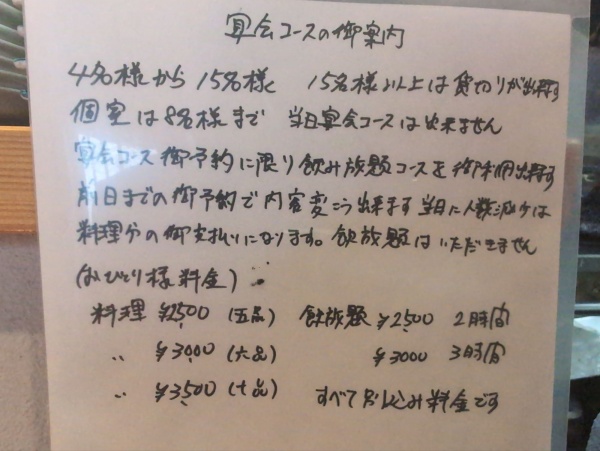 宴会コースの御案内
4名様から15名様 15名様以上は貸切りが出来ます
個室は8名様まで 当日宴会コースは出来ません
宴会コース御予約に限り飲み放題コースを御利用出来ます
前日までの御予約で内容変こう出来ます 当日に人数減少は
料理分の御支払いになります。飲放題はいただきません
(おひとり様料金)
料理 ¥2,500 (五品) 飲放題 ¥2,500 2時間
〃 ¥3,000 (六品) ¥3000 3時間
〃 ¥3,500 (七品) すべて込み料金です